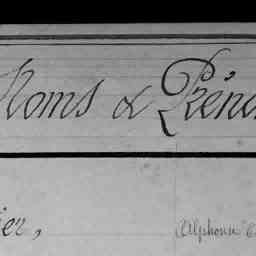 Noms & Préno
ier, Alphonse